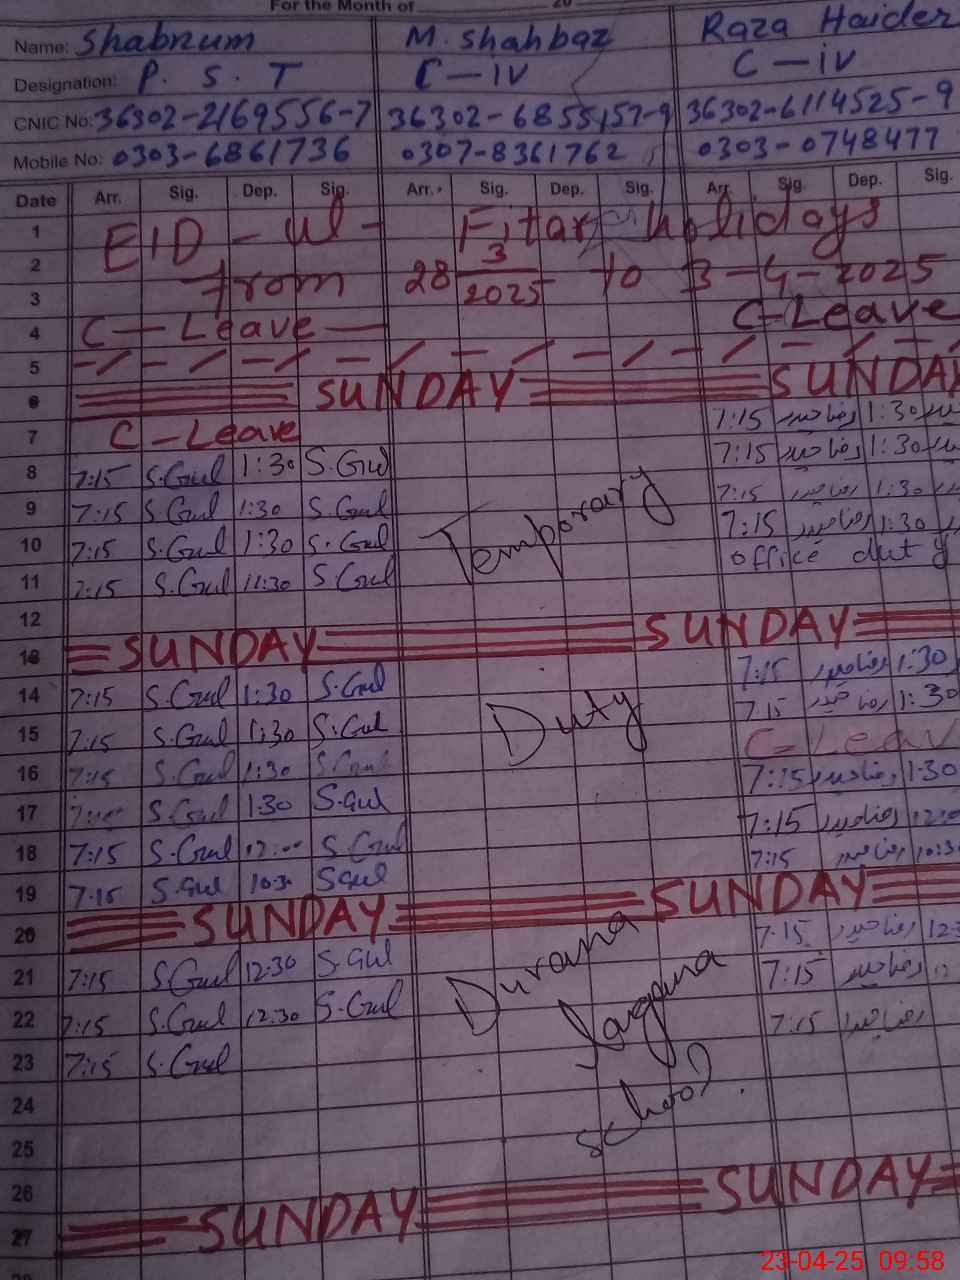 For the Month of 20
Name: Shabnum M. Shahbaz Raza Haider
Designation: P. S. T C-iv C-iv
CNIC No: 36302-2169556-7 36302-6855157-9 36302-6114525-9
Mobile No: 0303-6861736 0307-8361762 0303-0748477
Date Arr. Sig. Dep. Sig. Arr. Sig. Dep. Sig. Arr. Sig. Dep. Sig.
1 EID-ul-Fitar holidays
2 from 28 3 2025 to 3-4-2025
3 C-Leave
4 C-Leave
5
6 SUNDAY SUNDAY
7 C-Leave 7:15 رضا حیدر 1:30
8 7:15 S.Gul 1:30 S.Gul 7:15 رضا حیدر 1:30
9 7:15 S.Gul 1:30 S.Gul Temporary 7:15 رضا حیدر 1:30
10 7:15 S.Gul 1:30 S.Gul 7:15 رضا حیدر 1:30
11 7:15 S.Gul 11:30 S.Gul office duty
12
13 SUNDAY SUNDAY
14 7:15 S.Gul 1:30 S.Gul 7:15 رضا حیدر 1:30
15 7:15 S.Gul 1:30 S.Gul Duty 7:15 رضا حیدر 1:30
16 7:15 S.Gul 1:30 S.Gul C-Leav
17 S.Gul 1:30 S.Gul 7:15 رضا حیدر 1:30
18 7:15 S.Gul 12:00 S.Gul 7:15 رضا حیدر
19 7:15 S.Gul 10:3 S.Gul 7:15 رضا حیدر 10:3
20 SUNDAY SUNDAY
21 7:15 S.Gul 12:30 S.Gul Durana 7:15 رضا حیدر 12:3
22 7:15 S.Gul 12:30 S.Gul Langana 7:15 رضا حیدر
23 7:15 S.Gul school 7:15 رضا حیدر
24
25
26
27 SUNDAY SUNDAY
23-04-25 09:58